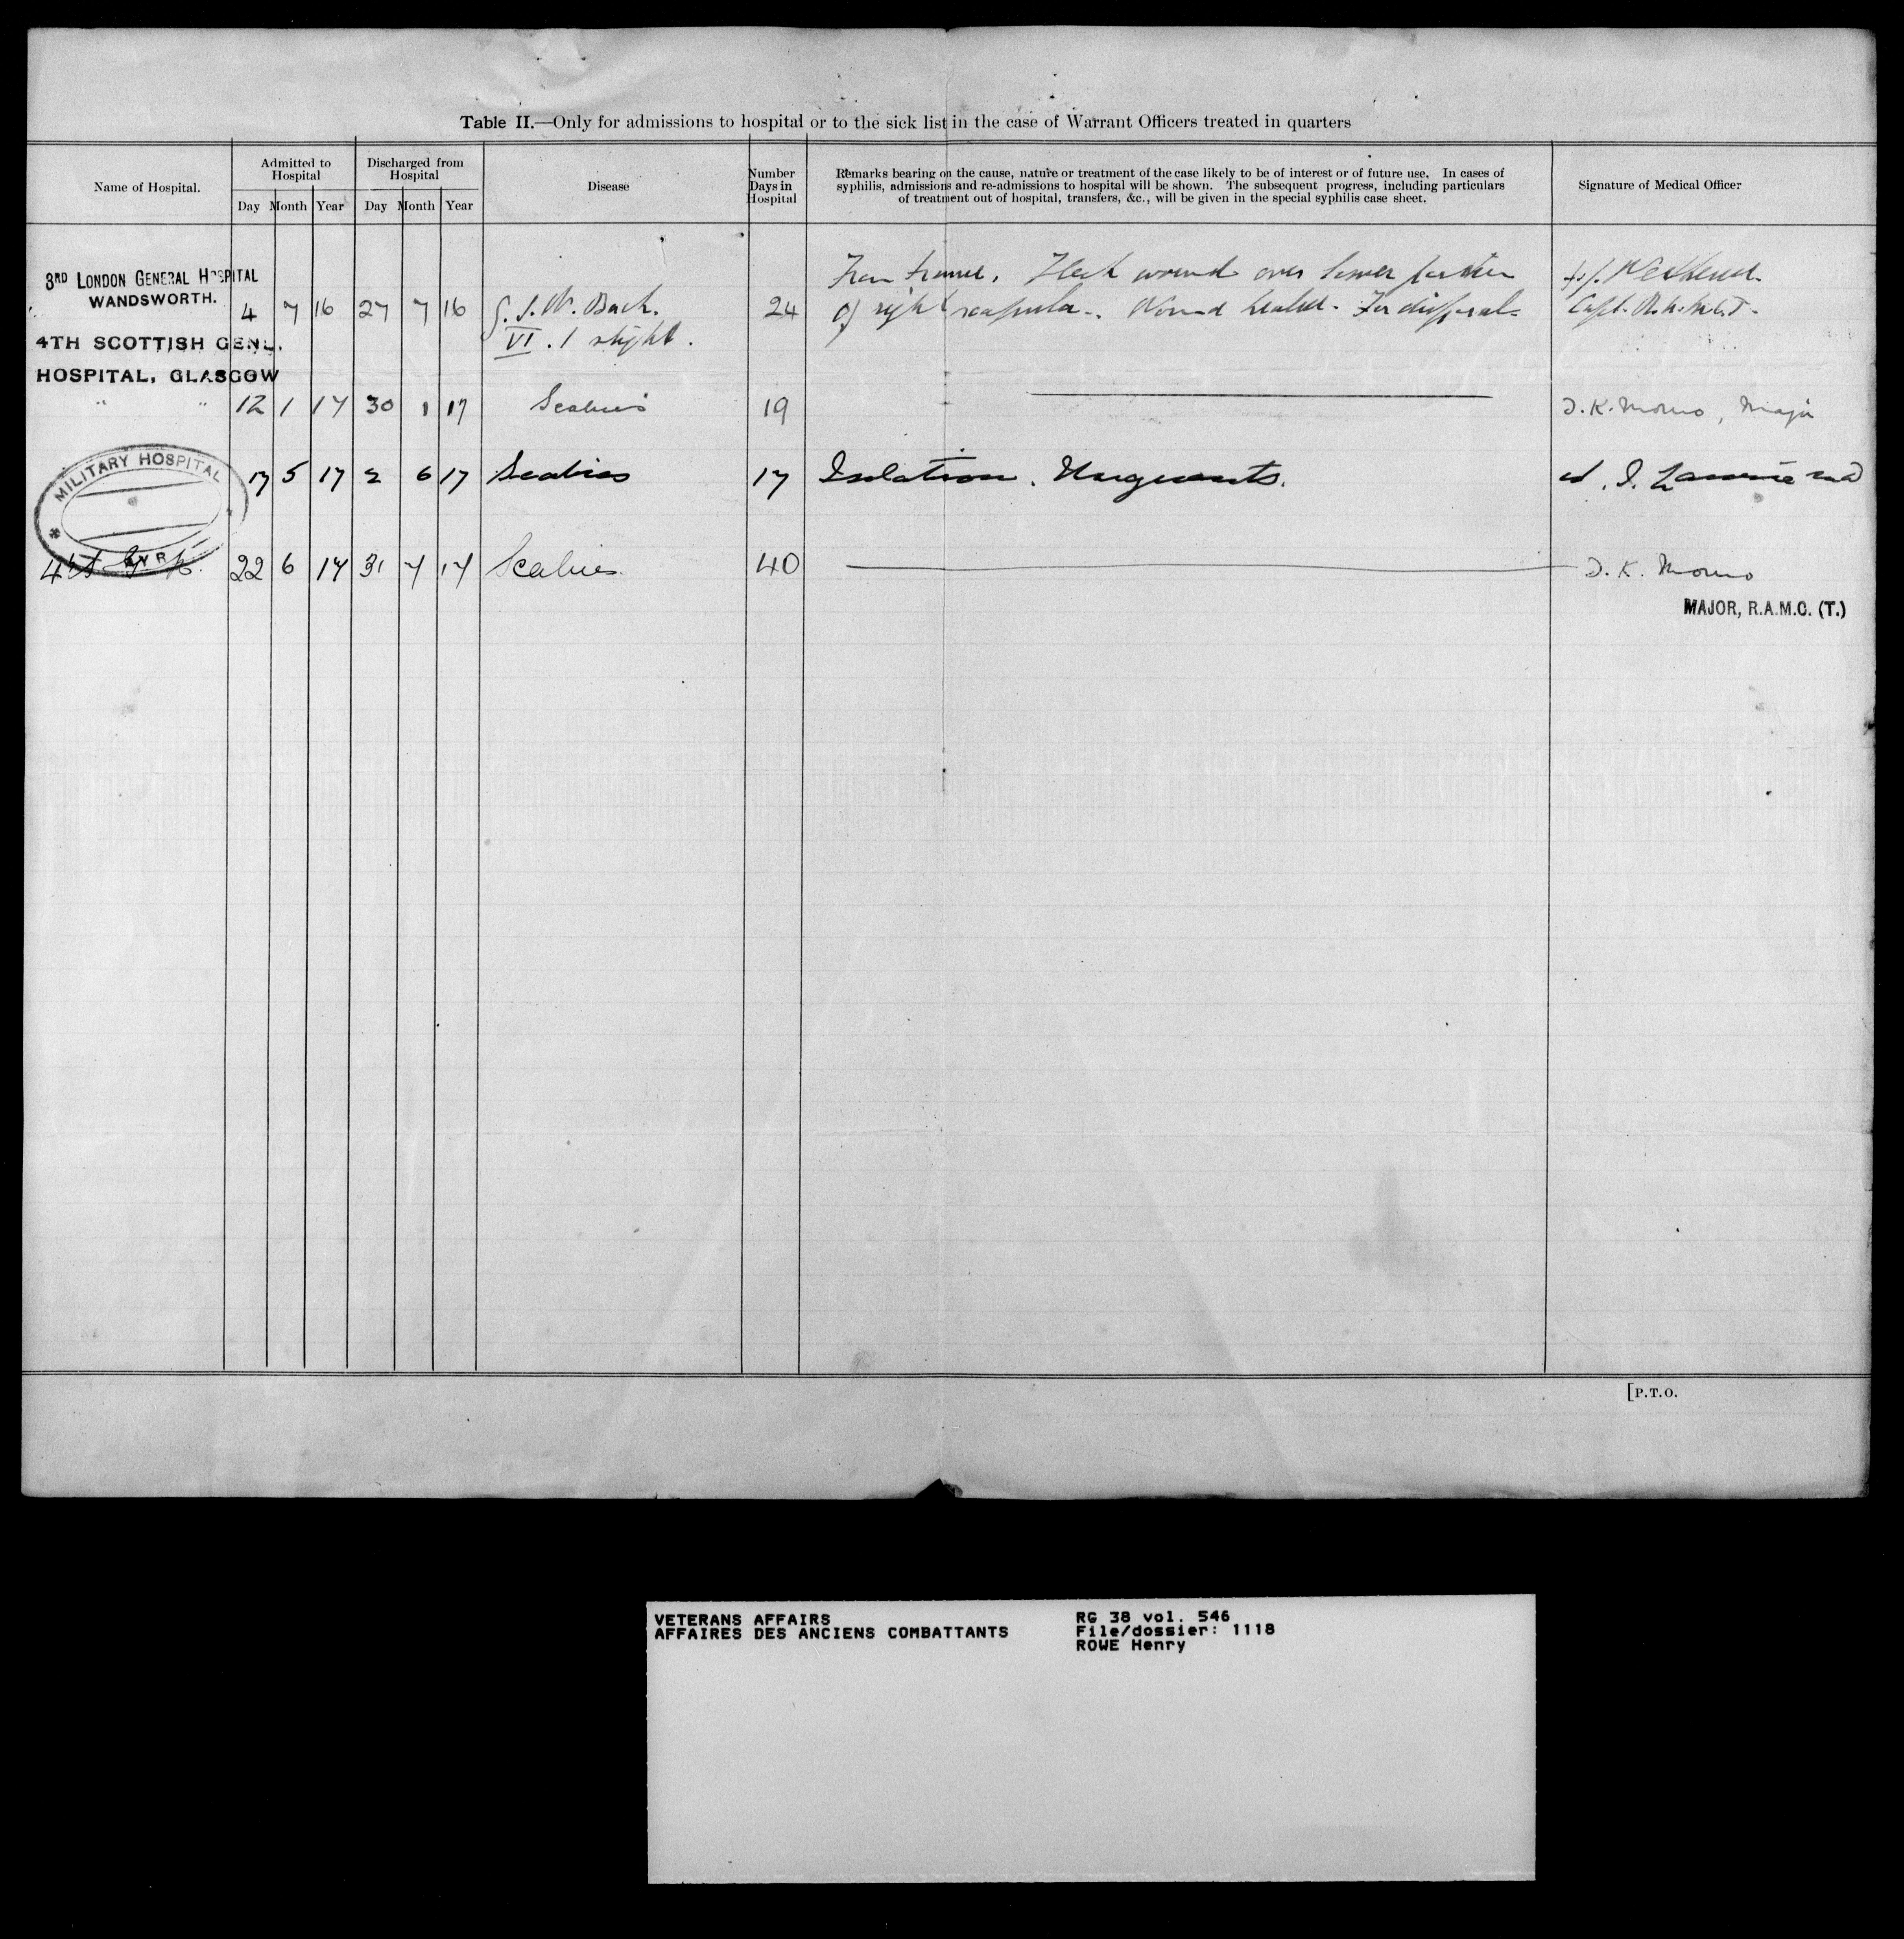 Table II.—Only for admissions to hospital or to the sick list in the case of Warrant Officers treated in quarters
Name of Hospital.
Admitted to Hospital
Discharged from Hospital
Day Month Year Day Month Year
Disease
Number Days in Hospital
Remarks bearing on the cause, nature or treatment of the case likely to be of interest or of future use. In cases of
syphilis, admissions and re-admissions to hospital will be shown. The subsequent progress, including particulars
of treatment out of hospital, transfers, &c., will be given in the special syphilis case sheet.
Signature of Medical Officer
3RD LONDON GENERAL HOSPITAL
WANDSWORTH.
4 7 16 27 7 16 G.S.W. Back. 24
VI. 1 slight.
Flesh wound over lower portion
of right scapula. Wound healed. For disposal
Capt.
4TH SCOTTISH GENL.
HOSPITAL, GLASGOW
" " 12 1 17 30 1 17 Scabies 19 Major
MILITARY HOSPITAL
AYR
17 5 17 2 6 17 Scabies 17 Isolation. Unguents.
22 6 17 31 7 17 Scabies 40
MAJOR, R.A.M.C. (T.)
[P.T.O.
VETERANS AFFAIRS
AFFAIRES DES ANCIENS COMBATTANTS
RG 38 vol. 546
File/dossier: 1118
ROWE Henry